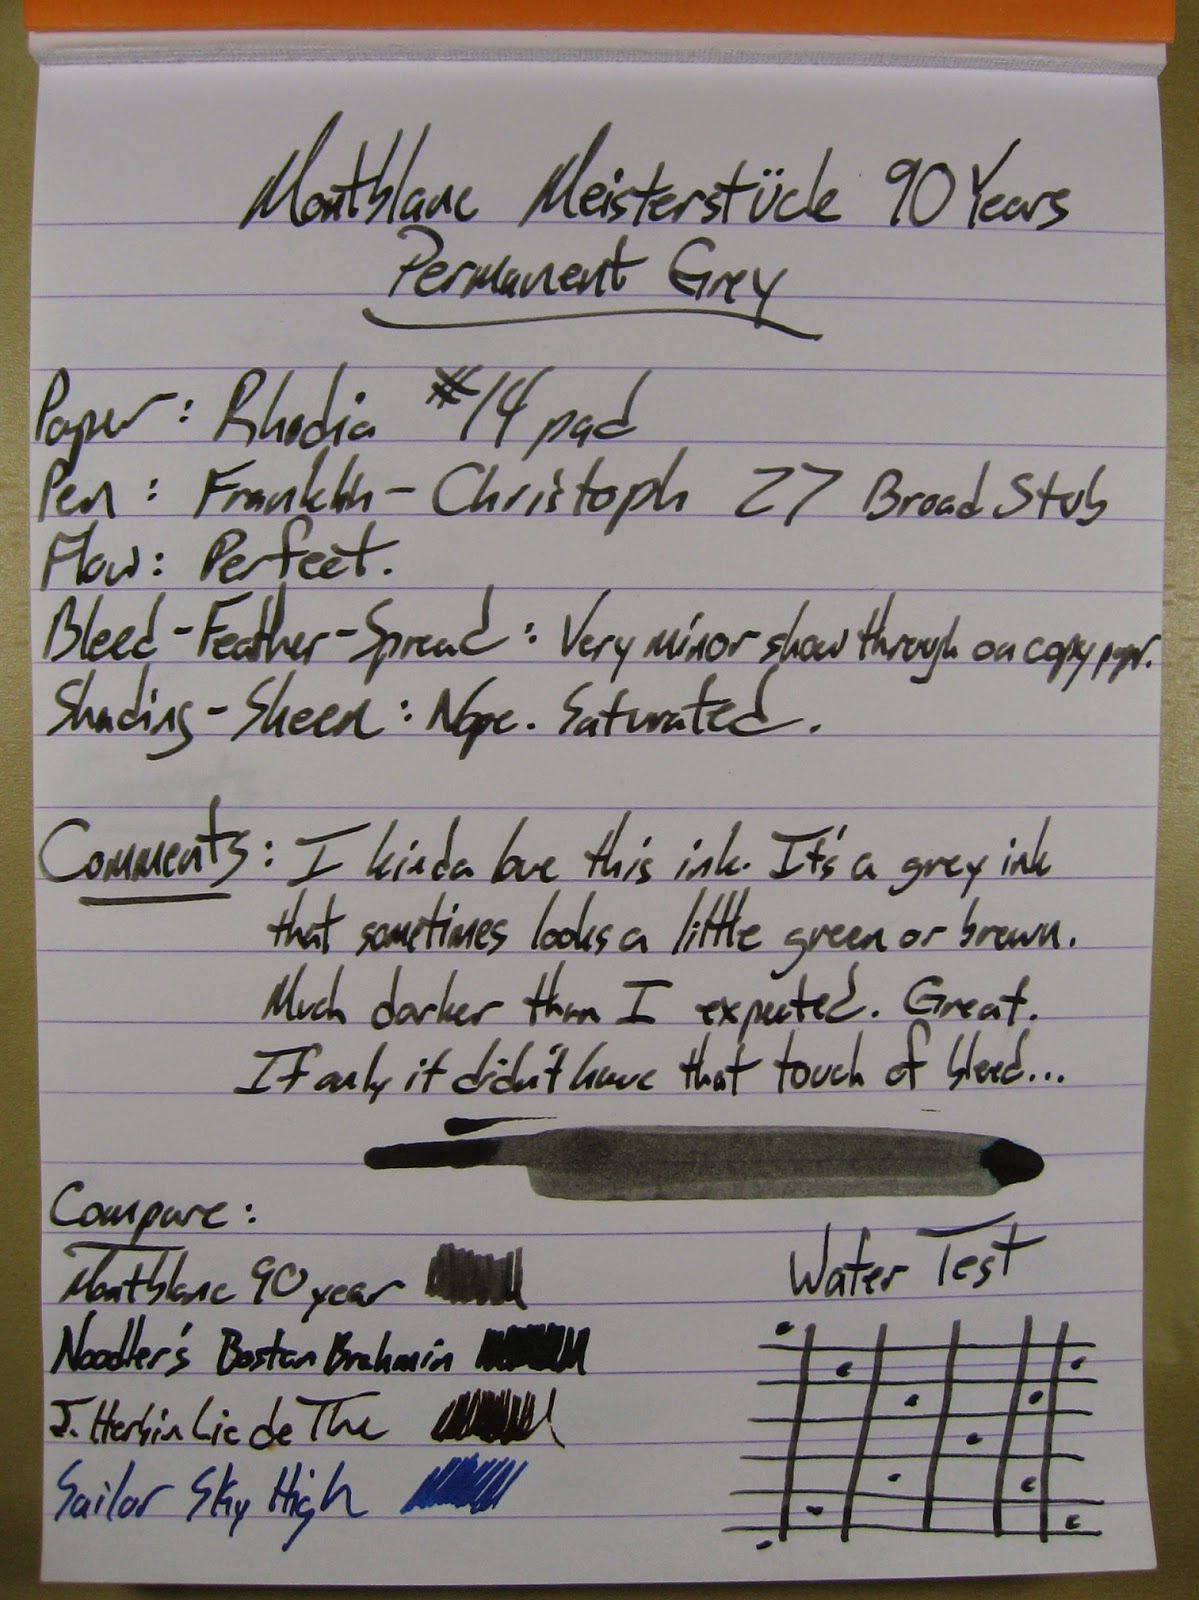 Montblanc Meisterstück 90 Years
Permanent Grey
Paper: Rhodia #14 pad
Pen: Franklin-Christoph 27 Broad Stub
Flow: Perfect.
Bleed-Feather-Spread: Very minor show through on copy paper.
Shading-Sheen: Nope. Saturated.
Comments: I kinda love this ink. It's a grey ink
that sometimes looks a little green or brown.
Much darker than I expected. Great.
If only it didn't have that touch of bleed...
Compare:
Montblanc 90 year
Noodler's Boston Brahmin
J. Herbin Lie de The
Sailor Sky High
Water Test